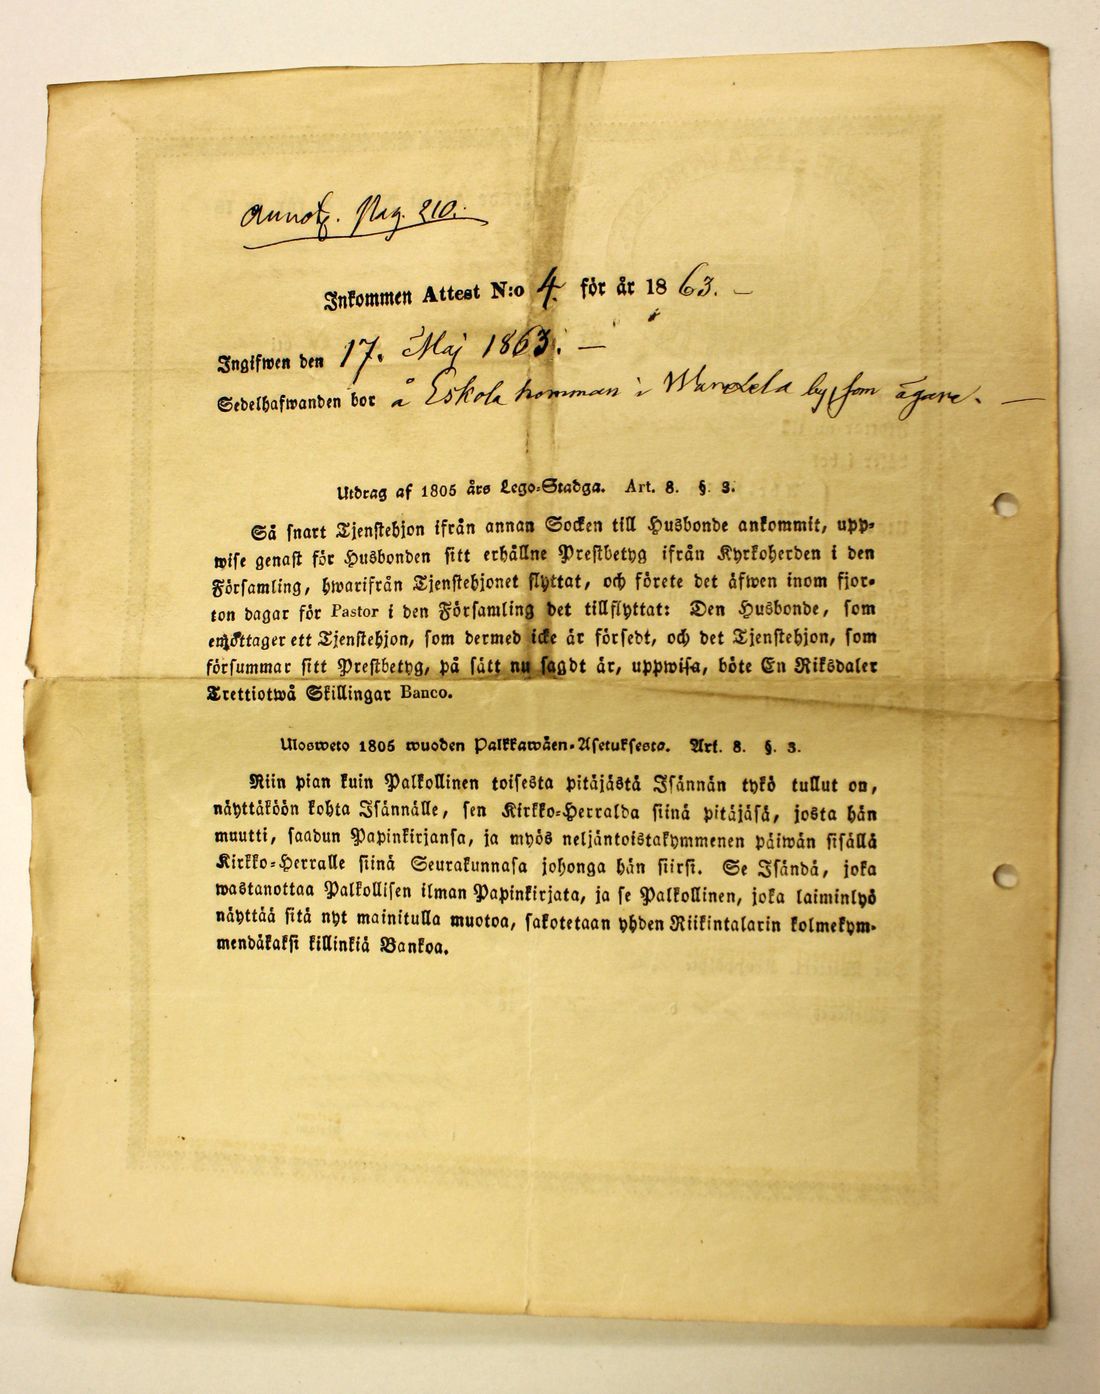 Annot. Pag. 210.
Inkommen Attest N:o 4. för år 1863. —
Ingifwen den 17. Maj 1863. —
Sedelhafwanden bor å Eskola hemman i by, som ägare. —
Utdrag af 1805 års Lego-Stadga. Art. 8. §. 3.
Så snart Tjenstehjon ifrån annan Socken till Husbonde ankommit, upp-
wise genast för Husbonden sitt erhållne Prestbetyg ifrån Kyrkoherden i den
Församling, hwarifrån Tjenstehjonet flyttat, och förete det äfwen inom fjor-
ton dagar för Pastor i den Församling det tillflyttat: Den Husbonde, som
emottager ett Tjenstehjon, som dermed icke är försedt, och det Tjenstehjon, som
försummar sitt Prestbetyg, på sätt nu sagdt är, uppwisa, böte En Riksdaler
Trettiotwå Skillingar Banco.
Ulosweto 1805 wuoden Palkkawäen-Asetuksesta. Art. 8. §. 3.
Niin pian kuin Palkollinen toisesta pitäjästä Isännän tykö tullut on,
näyttäköön kohta Isännälle, sen Kirkko-Herralda siinä pitäjäsä, josta hän
muutti, saadun Papinkirjansa, ja myös neljäntoistakymmenen päiwän sisällä
Kirkko-Herralle siinä Seurakunnasa johonga hän siirsi. Se Isändä, joka
wastanottaa Palkollisen ilman Papinkirjata, ja se Palkollinen, joka laiminlyö
näyttää sitä nyt mainitulla muotoa, sakotetaan yhden Riikintalarin kolmekym-
mendäkaksi killinkiä Bankoa.